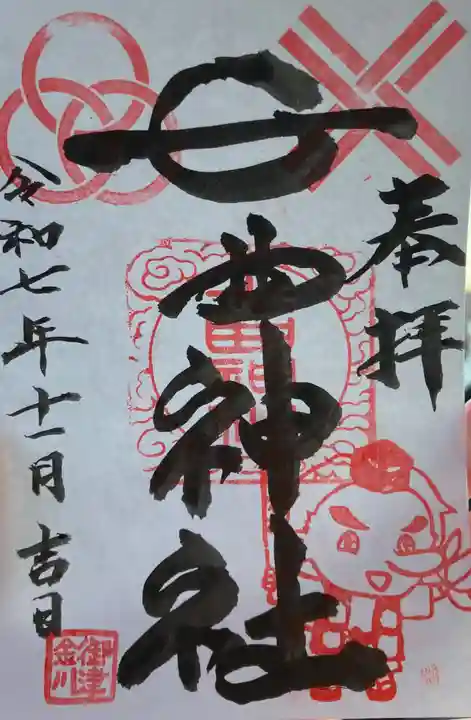 奉拝
七曲神社
令和七年十一月吉日
御津
金川